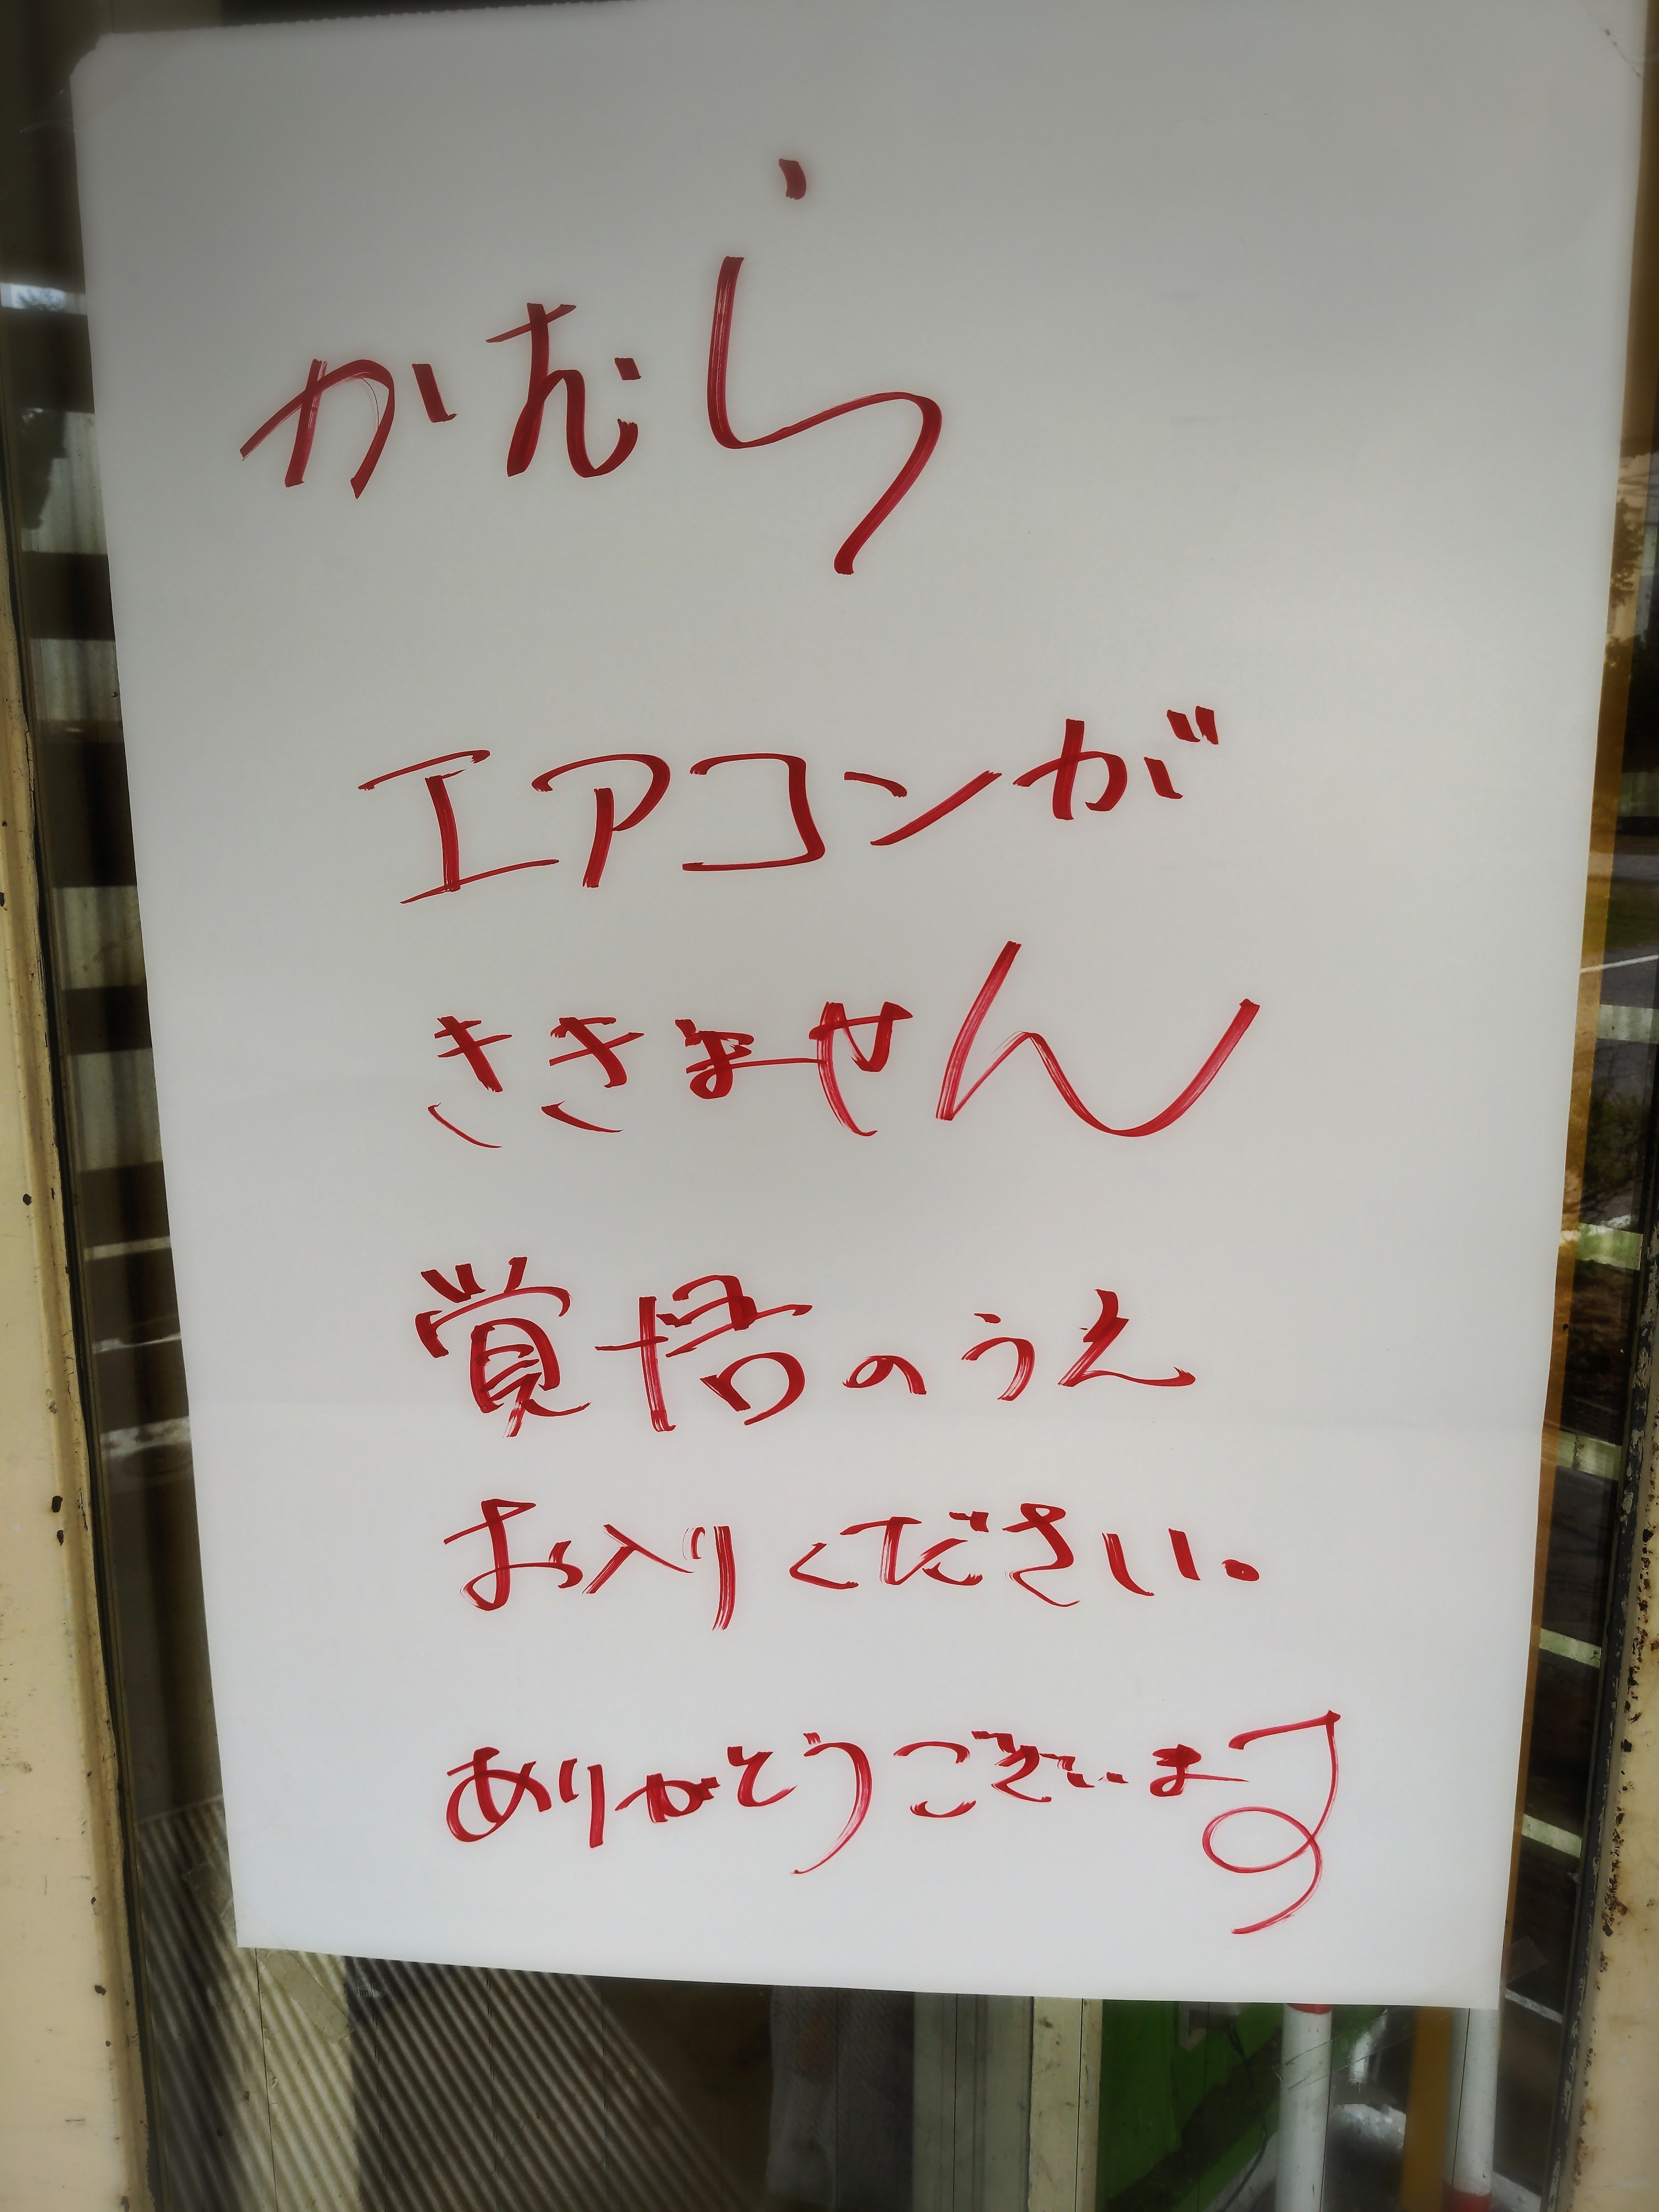 かむら
エアコンが
ききません
覚悟のうえ
お入りください。
ありがとうございます